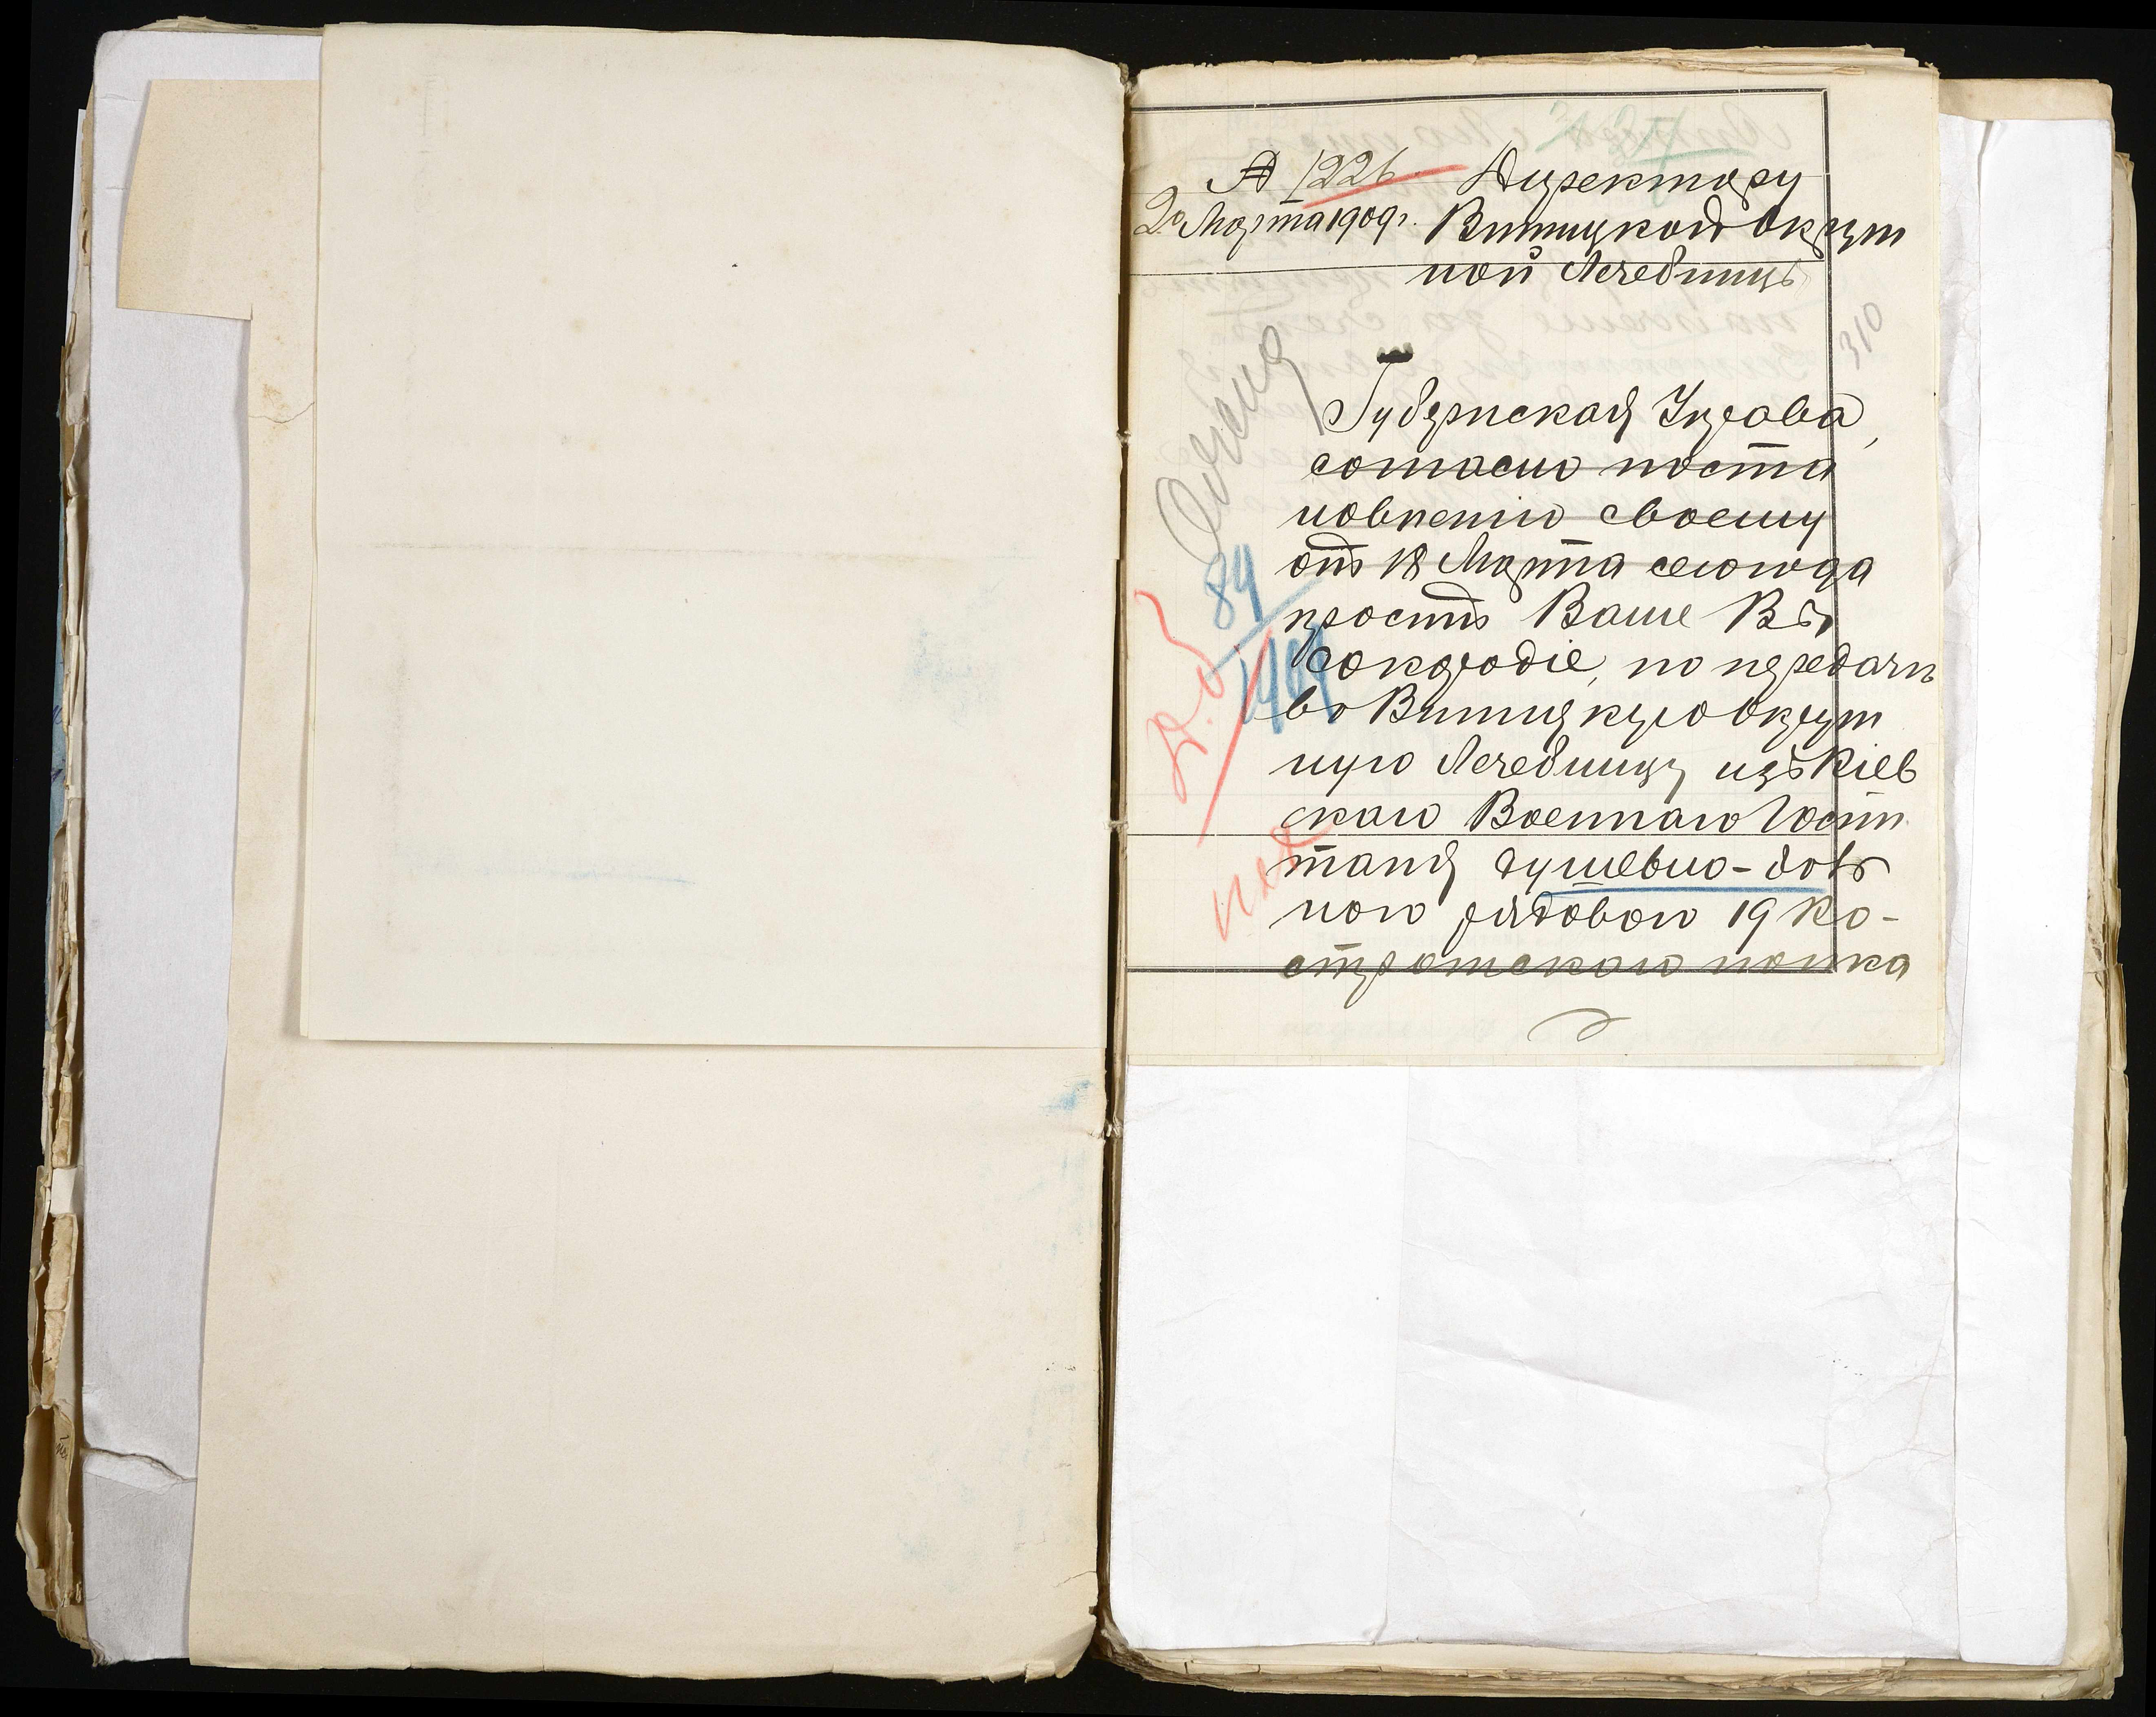 № 1226.
20 Марта 1909 г.
Директору
Винницкой Окруж
ной Лечебницы
310
Губернская Управа,
согласно поста
новленію своему
отъ 18 Марта сего года
проситъ Ваше Вы
сокородіе, по передачѣ
въ Винницкую Окруж
ную Лечебницу изъ Кіев
скаго Военнаго Госпи
таля душевно-боль
ного рядового 19 Ко-
стромского полка
84
1909